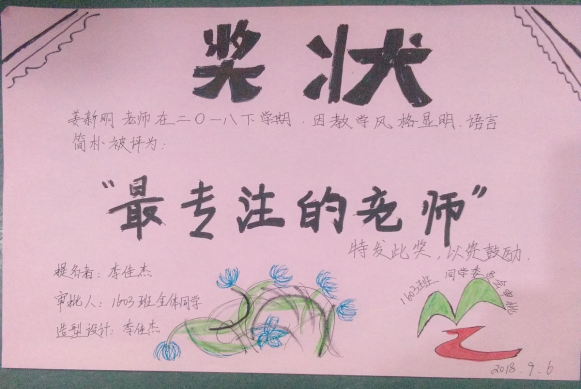 奖状
姜新明老师在二〇一八下学期.因教学风格显明.语言
简朴被评为:
“最专注的老师”
特发此奖,以资鼓励.
提名者:李佳杰
审批人:1603班全体同学
造型设计:李佳杰
1603班 同学委员会
2018.9.6